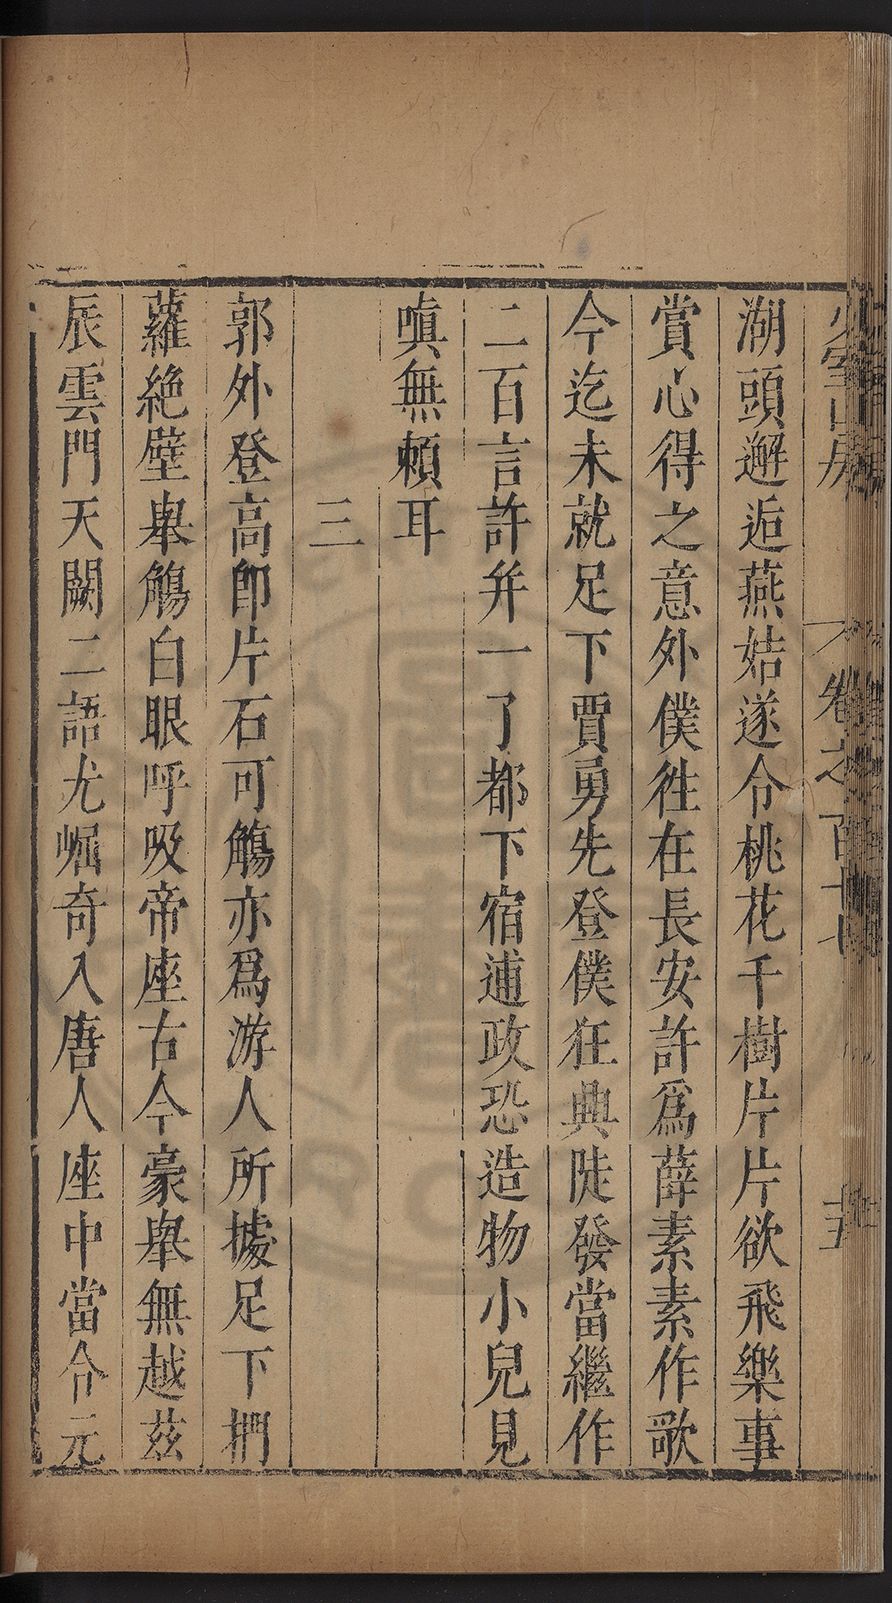 少室山房 卷之百十七 十五
湖頭邂逅燕姞遂令桃花千樹片片欲飛樂事
賞心得之意外僕徃在長安許爲薛素素作歌
今迄未就足下賈勇先登僕狂興陡發當繼作
二百言許并一了都下宿逋政恐造物小兒見
嗔無賴耳
三
郭外登高卽片石可觴亦爲游人所據足下捫
蘿絶壁舉觴白眼呼吸帝座古今豪舉無越茲
辰雲門天闕二語尤崛奇入唐人座中當令元